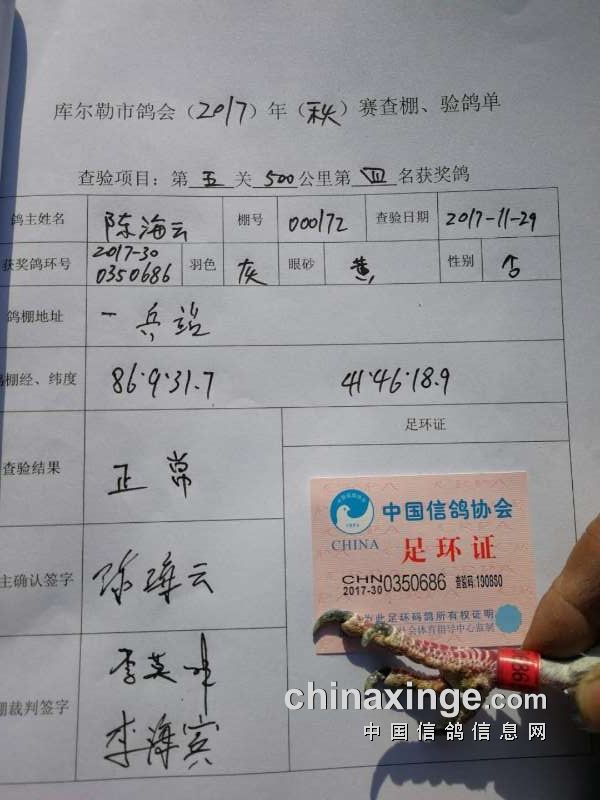 库尔勒市鸽会（2017）年（秋）赛查棚、验鸽单
查验项目：第 五 关 500公里第 四 名获奖鸽
鸽主姓名 陈海云 棚号 000172 查验日期 2017-11-29
获奖鸽环号 2017-30 0350686 羽色 灰 眼砂 黄 性别
鸽棚地址 一兵站
棚经、纬度 86°9'31.7 41°46'18.9
足环证
查验结果 正常
中国信鸽协会
CHINA 足环证
CHN 2017-30 0350686 查验码:190850
为此足环码鸽所有权证明
社会体育指导中心监制
主确认签字 陈海云
棚裁判签字 李英
李海宾
chinaxinge.com
中国信鸽信息网